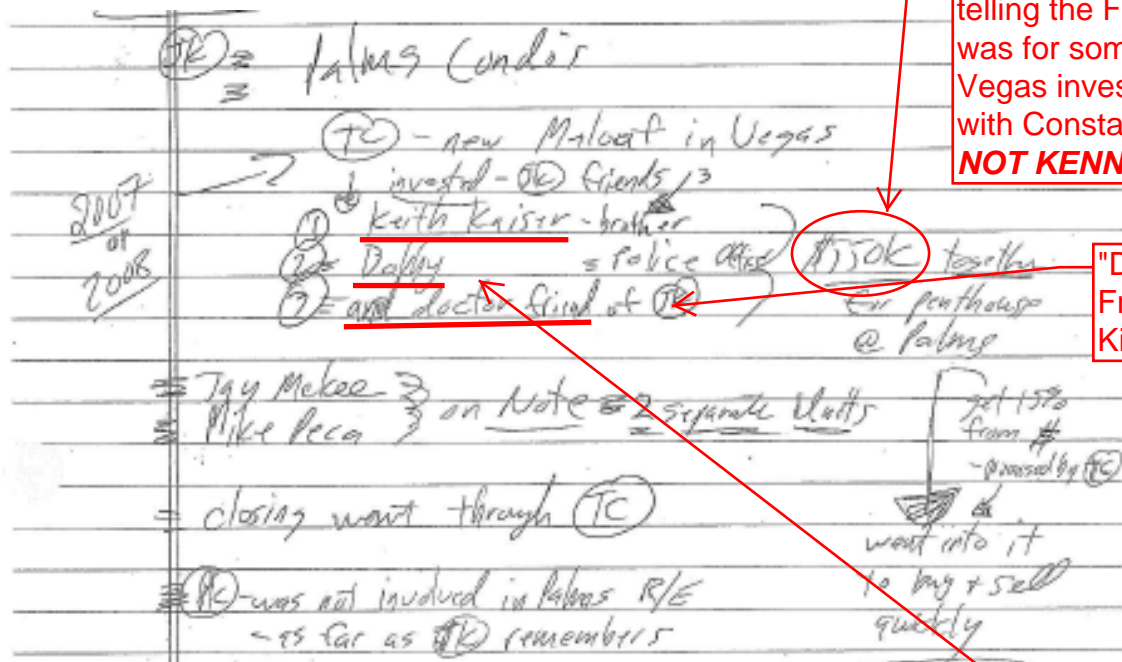 telling the F
was for som
Vegas inves
with Consta
NOT KENN
JK = Palms Condos
TC - new Maloof in Vegas
2007 or 2008
invested - JK friends 3
① Keith Kaiser - brother
② = Dobby = Police officer
③ = and doctor friend of JK
$550k together
for penthouse
@ Palms
"D
Fr
Ki
= Jay Mckee
= Mike Peca
on Note = 2 separate Units
get 15%
from #
- promised by TC
= closing went through TC
went into it
to buy + sell
quickly
= PC - was not involved in Palms R/E
- as far as JK remembers